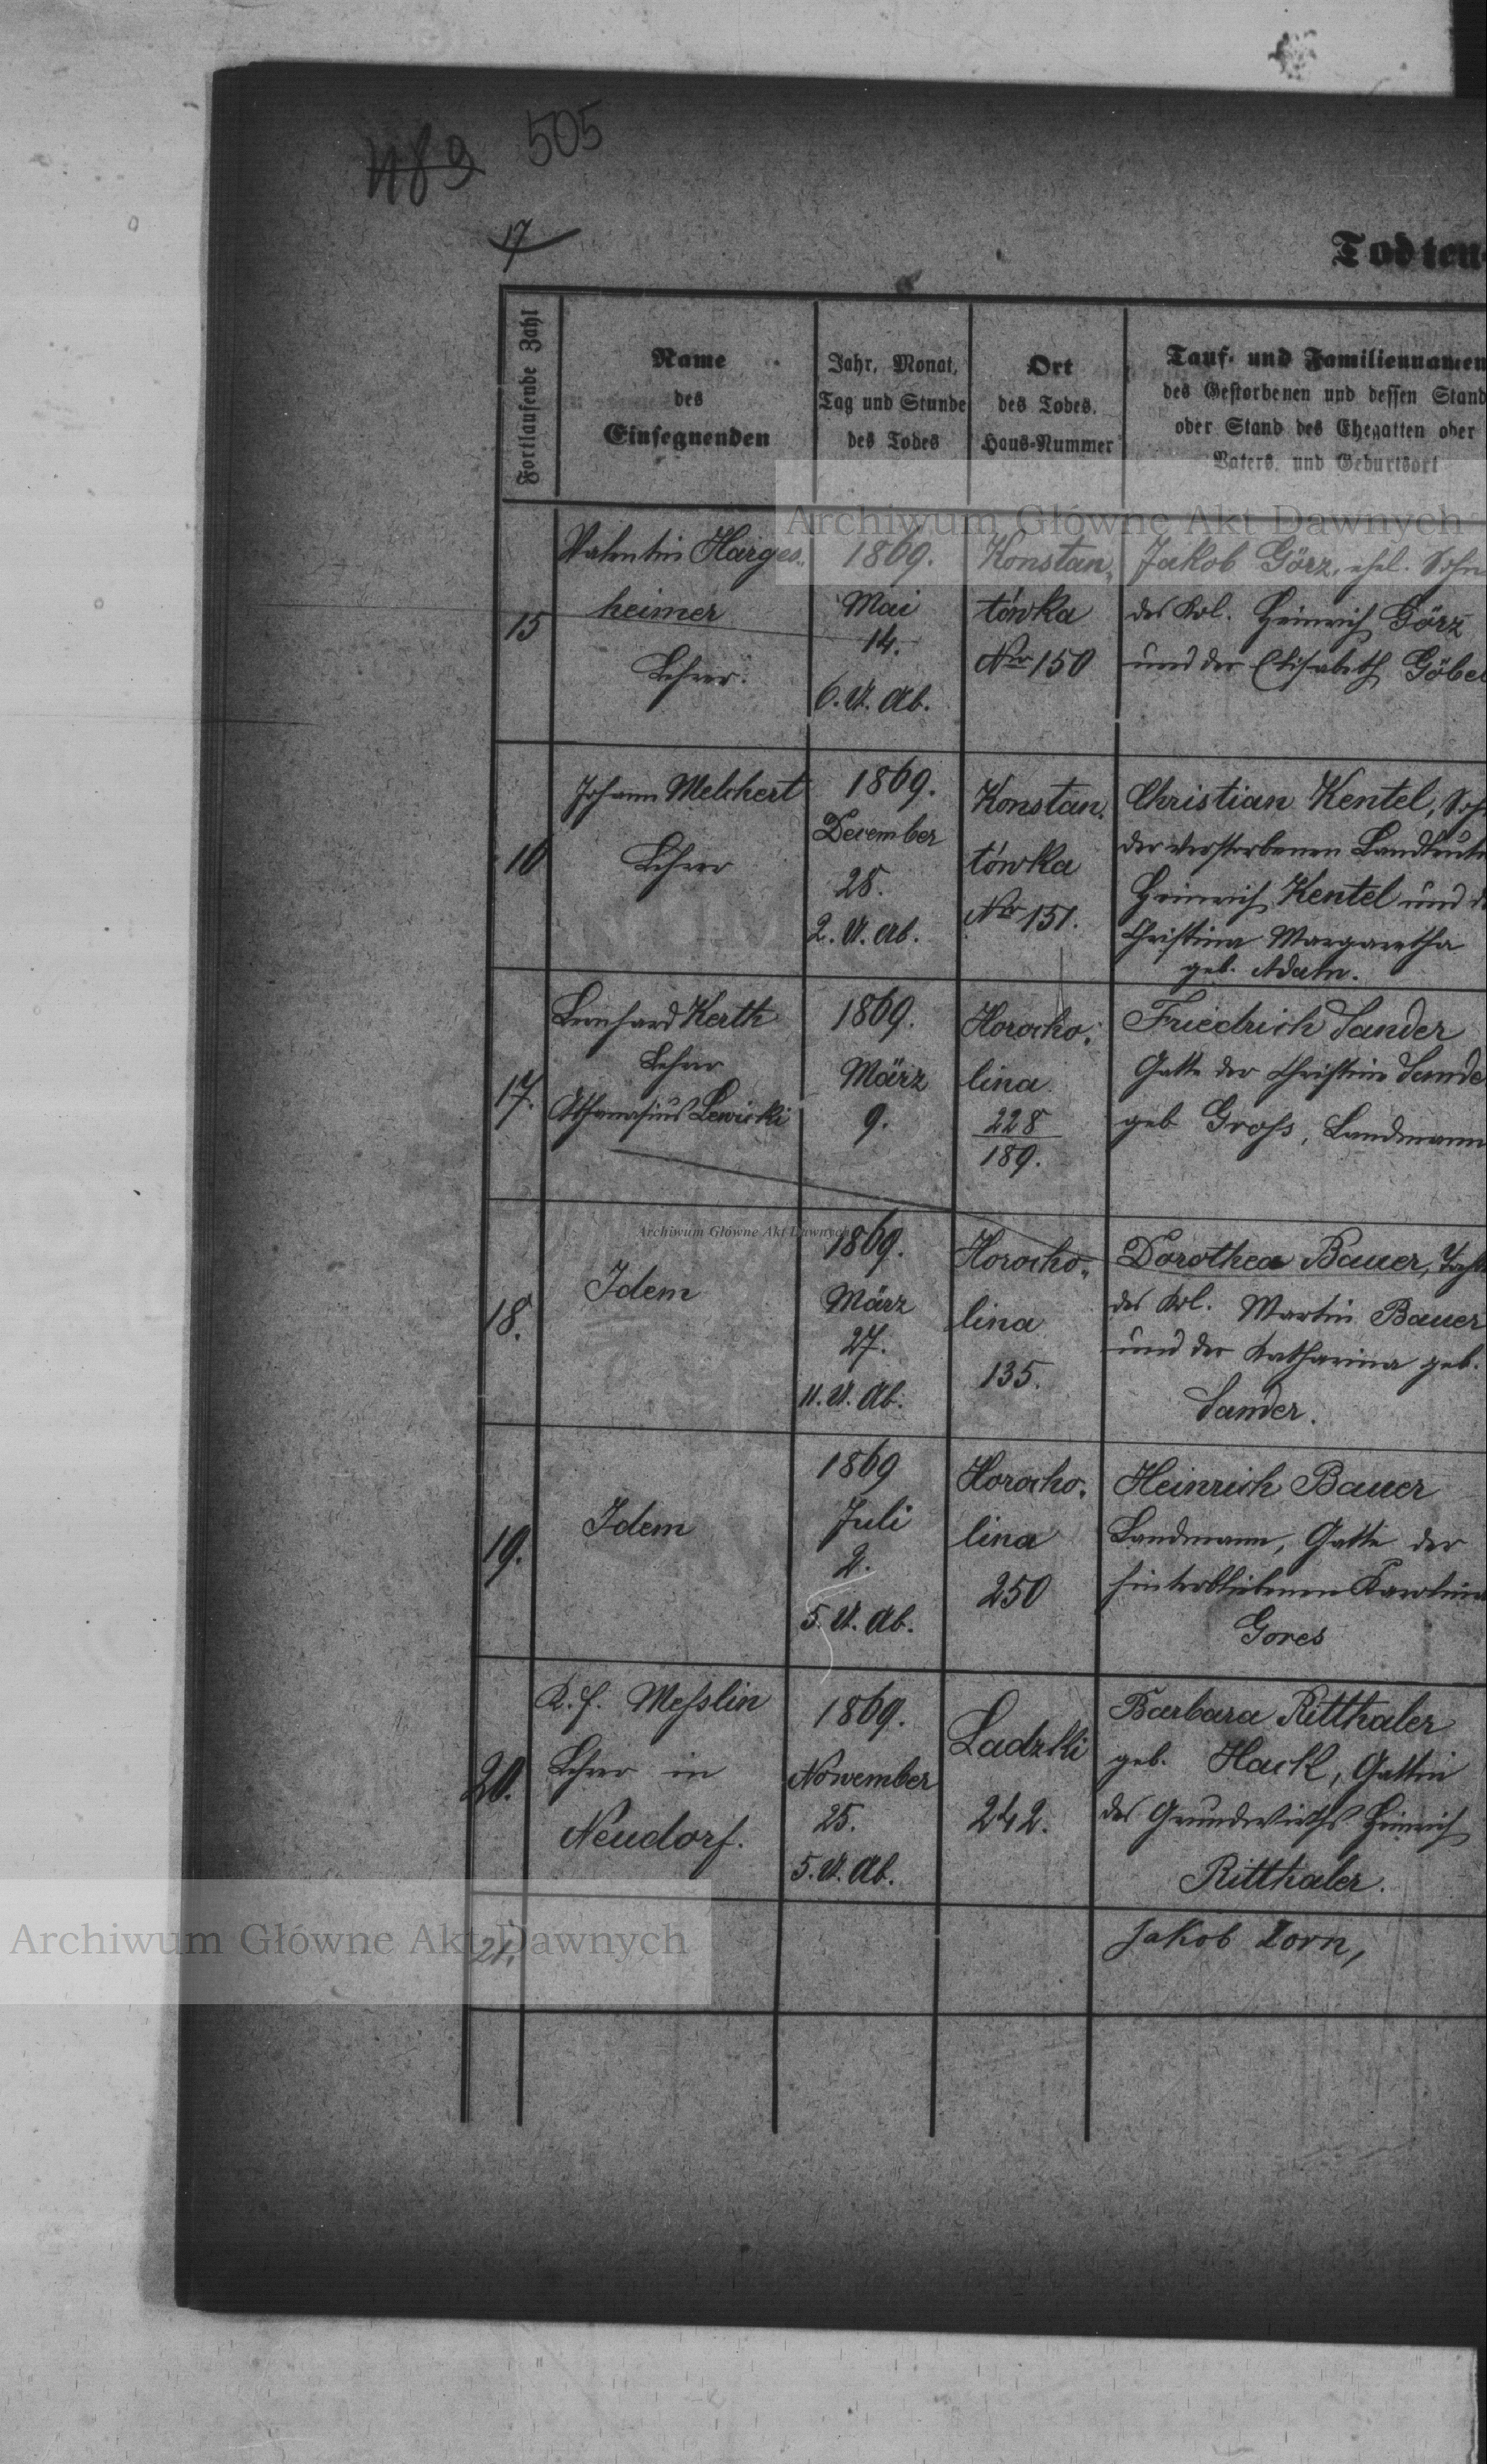 489 505
17
Todten-
Fortlaufende Zahl
Name
des
Einsegnenden
Jahr, Monat,
Tag und Stunde
des Todes
Ort
des Todes,
Haus-Nummer
Tauf- und Familiennamen
des Gestorbenen und dessen Stand
oder Stand des Ehegatten oder
Vaters, und Geburtsort
Archiwum Główne Akt Dawnych
15
Valentin Harges„
heimer
Lehrer.
1869.
Mai
14.
6. U. Ab.
Konstan„
tówka
Nro 150
Jakob Görz, ehel. Sohn
des Kol. Heinrich Görz
und der Elisabeth Göbel
16
Johann Melchert
Lehrer
1869.
December
28.
2. U. Ab.
Konstan„
tówka
Nro 151.
Christian Kentel, Soh
der verstorbenen Landleute
Heinrich Kentel und d
Christina Margaretha
geb. Adam.
17.
Leonhard Kerth
Lehrer
Athanasius Lewicki
1869.
März
9.
Horocho„
lina
228
189.
Friedrich Sander
Gatte der Christine Sande
geb Groß, Landmann
Archiwum Główne Akt Dawnych
18.
Idem
1869.
März
27.
11. U. Ab.
Horocho„
lina
135.
Dorothea Bauer, Toch
des Kol. Martin Bauer
und der Katharina geb.
Sander.
19.
Idem
1869
Juli
2.
5. U. Ab.
Horocho„
lina
250
Heinrich Bauer
Landmann, Gatte der
hinterbliebenen Karolina
Gores
20.
K. f. Meßlin
Lehrer in
Neudorf.
1869.
November
25.
5. U. Ab.
Ladzki
242.
Barbara Ritthaler
geb. Hack, Gattin
des Grundwirths Heinrich
Ritthaler.
Archiwum Główne Akt Dawnych
21.
Jakob Zorn,